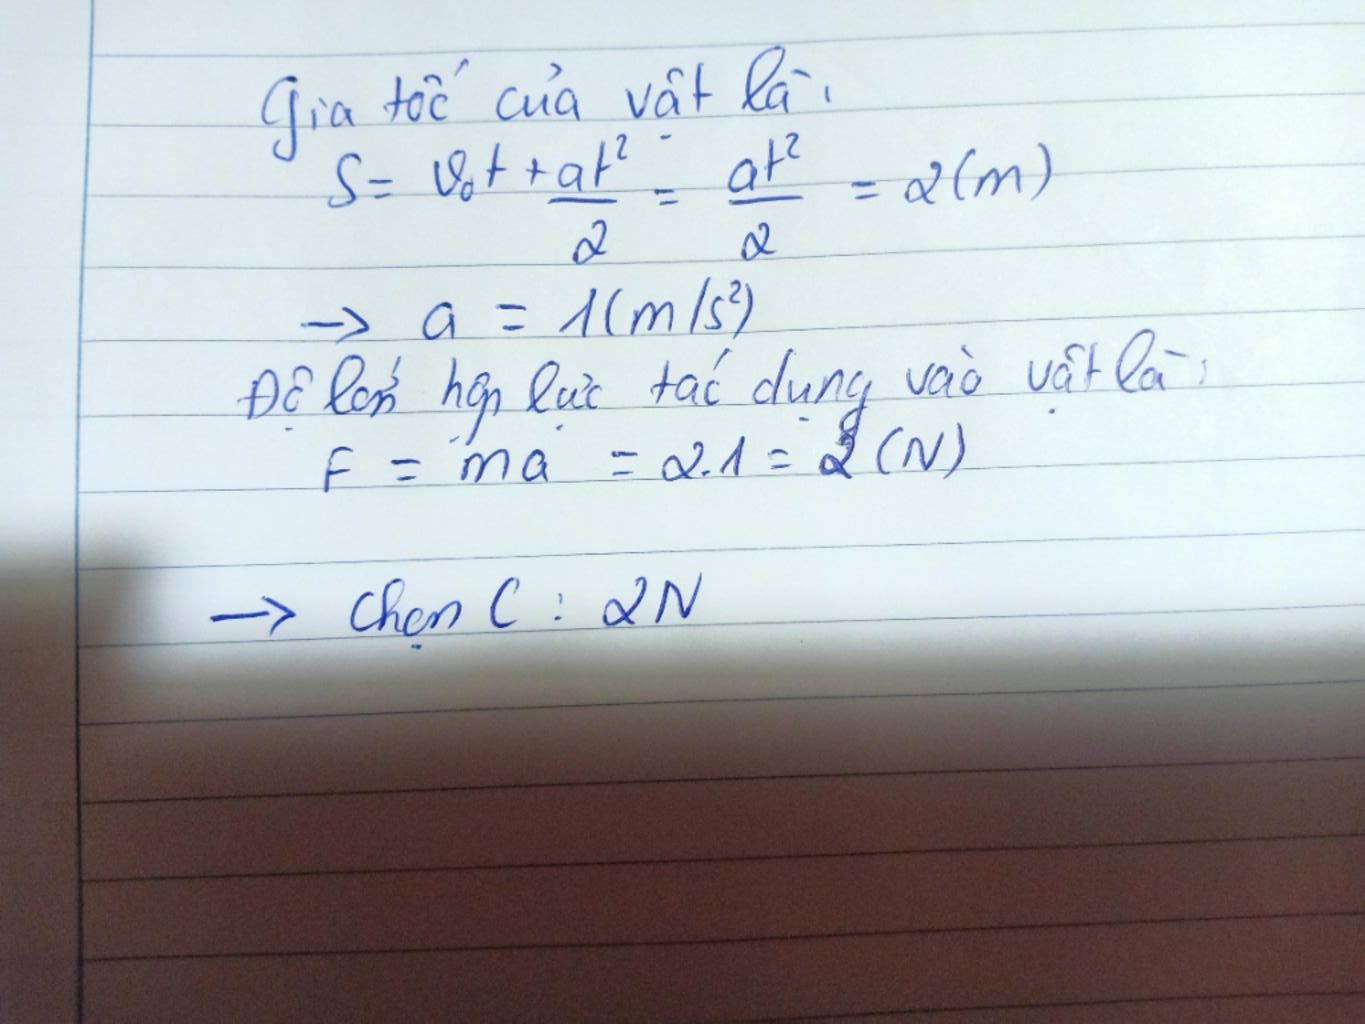 Gia tốc của vật là:
S = v₀t + at²/2 = at²/2 = 2(m)
→ a = 1(m/s²)
Độ lớn hợp lực tác dụng vào vật là:
F = ma = 2.1 = 2 (N)
→ Chọn C : 2N